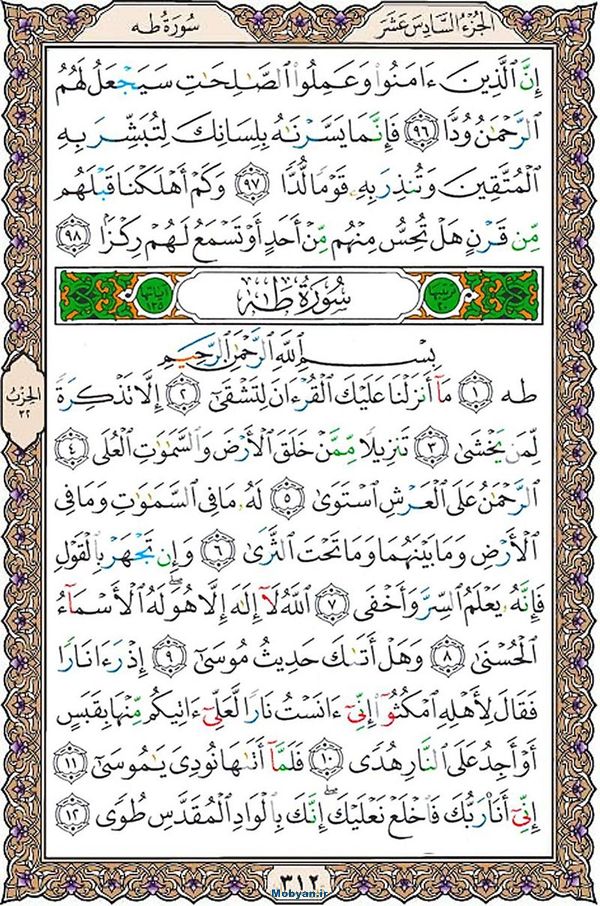 الجزء السادس عشر
سورة طه
إِنَّ ٱلَّذِينَ ءَامَنُوا۟ وَعَمِلُوا۟ ٱلصَّـٰلِحَـٰتِ سَيَجْعَلُ لَهُمُ
ٱلرَّحْمَـٰنُ وُدًّا ٩٦ فَإِنَّمَا يَسَّرْنَـٰهُ بِلِسَانِكَ لِتُبَشِّرَ بِهِ
ٱلْمُتَّقِينَ وَتُنذِرَ بِهِۦ قَوْمًا لُّدًّا ٩٧ وَكَمْ أَهْلَكْنَا قَبْلَهُم
مِّن قَرْنٍ هَلْ تُحِسُّ مِنْهُم مِّنْ أَحَدٍ أَوْ تَسْمَعُ لَهُمْ رِكْزًۢا ٩٨
ترتيبها ٢٠
سُورَةُ طه
آياتها ١٣٥
بِسْمِ ٱللَّهِ ٱلرَّحْمَـٰنِ ٱلرَّحِيمِ
طه ١ مَآ أَنزَلْنَا عَلَيْكَ ٱلْقُرْءَانَ لِتَشْقَىٰٓ ٢ إِلَّا تَذْكِرَةً
لِّمَن يَخْشَىٰ ٣ تَنزِيلًا مِّمَّنْ خَلَقَ ٱلْأَرْضَ وَٱلسَّمَـٰوَٰتِ ٱلْعُلَى ٤
ٱلرَّحْمَـٰنُ عَلَى ٱلْعَرْشِ ٱسْتَوَىٰ ٥ لَهُۥ مَا فِى ٱلسَّمَـٰوَٰتِ وَمَا فِى
ٱلْأَرْضِ وَمَا بَيْنَهُمَا وَمَا تَحْتَ ٱلثَّرَىٰ ٦ وَإِن تَجْهَرْ بِٱلْقَوْلِ
فَإِنَّهُۥ يَعْلَمُ ٱلسِّرَّ وَأَخْفَى ٧ ٱللَّهُ لَآ إِلَـٰهَ إِلَّا هُوَ ۖ لَهُ ٱلْأَسْمَآءُ
ٱلْحُسْنَىٰ ٨ وَهَلْ أَتَىٰكَ حَدِيثُ مُوسَىٰٓ ٩ إِذْ رَءَا نَارًا
فَقَالَ لِأَهْلِهِ ٱمْكُثُوٓا۟ إِنِّىٓ ءَانَسْتُ نَارًا لَّعَلِّىٓ ءَاتِيكُم مِّنْهَا بِقَبَسٍ
أَوْ أَجِدُ عَلَى ٱلنَّارِ هُدًى ١٠ فَلَمَّآ أَتَىٰهَا نُودِىَ يَـٰمُوسَىٰٓ ١١
إِنِّىٓ أَنَا۠ رَبُّكَ فَٱخْلَعْ نَعْلَيْكَ ۖ إِنَّكَ بِٱلْوَادِ ٱلْمُقَدَّسِ طُوًى ١٢
الحزب
٣٢
٣١٢
Mobyan.ir